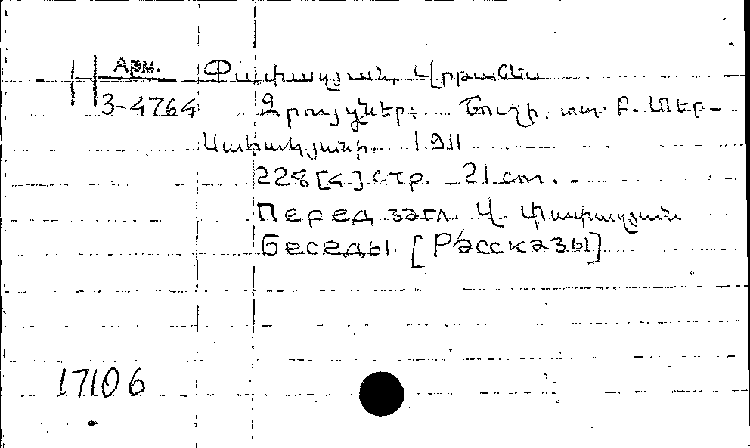 Арм. Փափազյան, Վրթանես
3-4764 Զրույցներ: Շուշի, տպ. Բ. Տեր-
Սահակյանի. 1911
228[4] стр. 21 см.
Перед загл. Վ. Փափազյան
Беседы [Рассказы]
17106